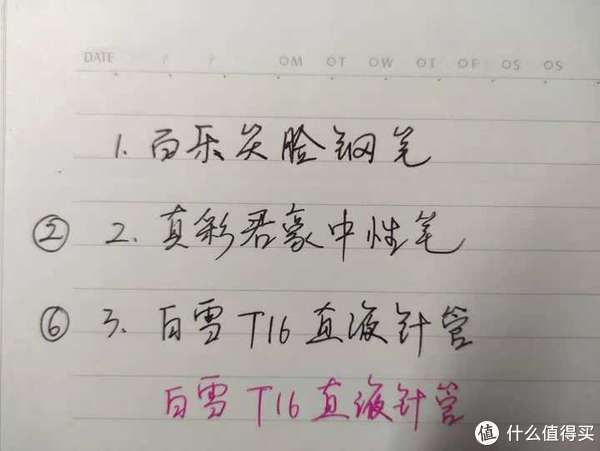 DATE OM OT OW OT OF OS OS
1. 百乐笑脸钢笔
② 2. 真彩君豪中性笔
⑥ 3. 白雪T16直液针管
白雪T16直液针管
值 什么值得买